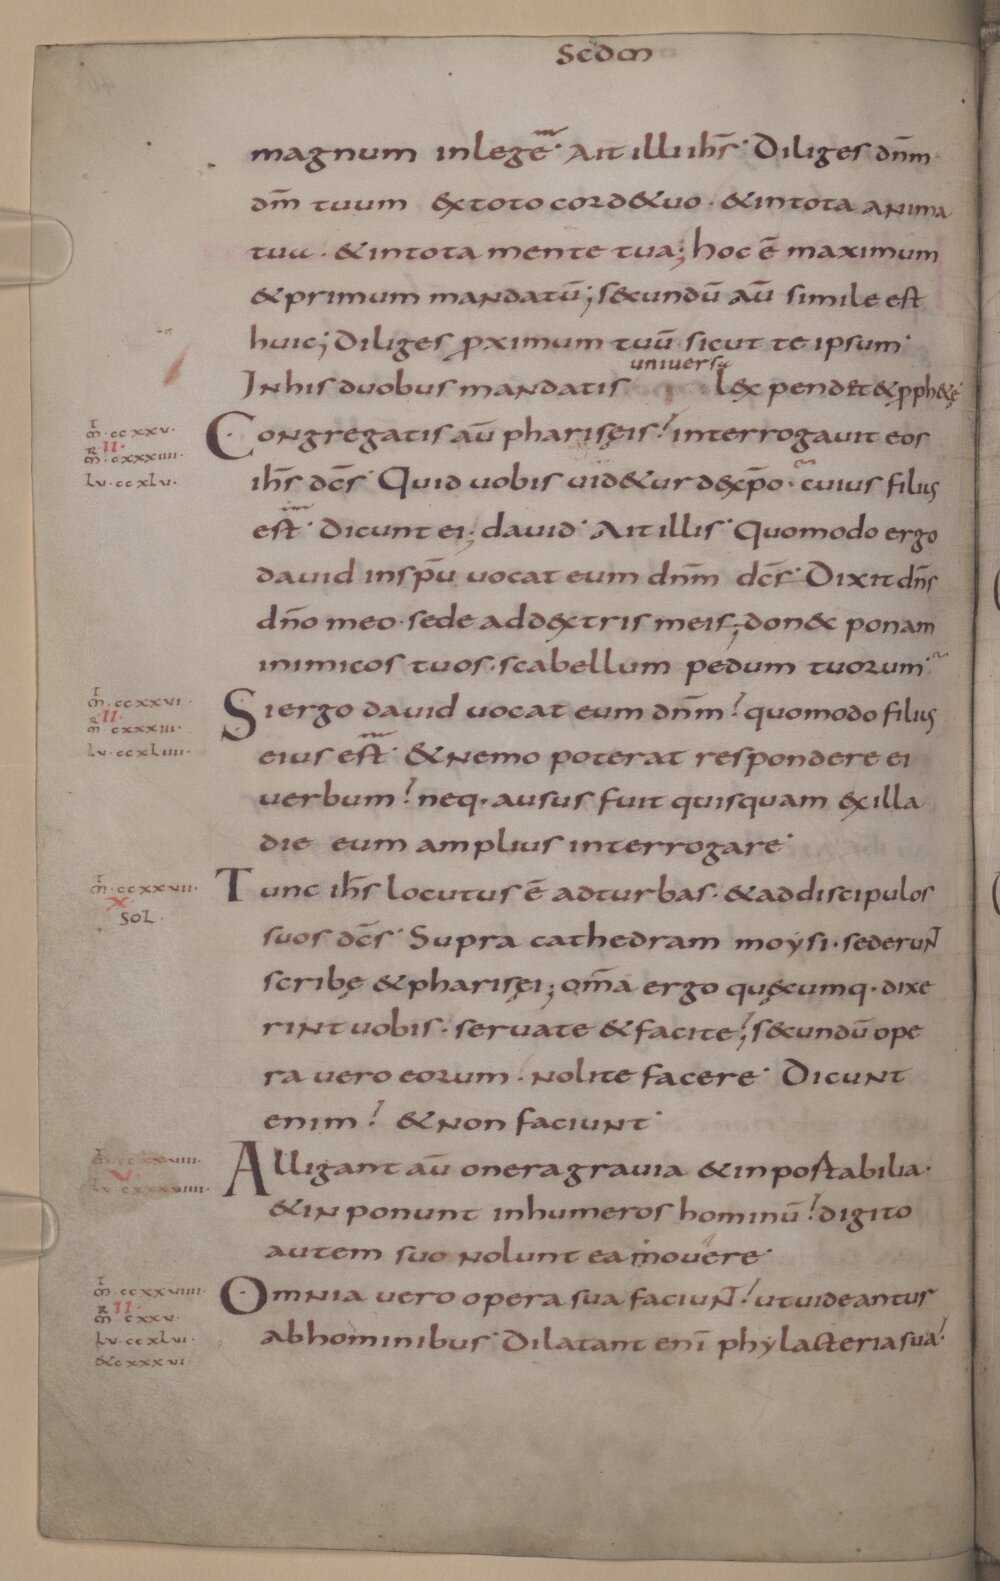 Secdm
magnum inlege· Ait illi ihs̄· Diliges dn̄m
dm̄ tuum &xtoto cord&uo· &intota anima
tua· &intota mente tua; hoc ē maximum
&primum mandatū; s&cundū aū simile est
huic; Diliges ꝓximum tuū sicut te ipsum·
universa
Inhis duobus mandatis l&x pendet &ꝓph&ę·
mt̄·ccxxv·
II·
mr̄·cxxxiiii·
Lu·ccxlv·
Congregatis aū pharisęis! interrogavit eos
ihs̄ dc̄s· Quid uobis uid&ur d&xp̄o· cuius filius
est· Dicunt ei; david· Ait illis· Quomodo ergo
david insp̄u uocat eum dn̄m dc̄s· Dixit dn̄s
dn̄o meo· sede add&xtris meis; don&c ponam
inimicos tuos· scabellum pedum tuorum·
mt̄·ccxxvi·
II·
mr̄·cxxxiii·
Lu·ccxliiii·
Siergo david uocat eum dn̄m! quomodo filius
eius est· &nemo poterat respondere ei
verbum! neq· ausus fuit quisquam &xilla
die eum amplius interrogare·
mt̄·ccxxvii·
X·
SOL·
Tunc ihs̄ locutus ē adturbas· &addiscipulos
suos dc̄s· Supra cathedram moysi· sederunt
scribę &pharisęi; om̄a ergo quęcumq· dixe
rint uobis· servate &facite; s&cundū ope
ra vero eorum· nolite facere· Dicunt
enim! &non faciunt·
Alligant aū onera gravia &inpostabilia·
&inponunt inhumeros hominū! digito
autem suo nolunt ea movere·
mt̄·ccxxviiii·
II·
mr̄·cxxv·
Lu·ccxlvi·
&cxxxvi·
Omnia vero opera sua faciunt! utuideantur
abhominibus· Dilatant eni phylacteria sua!